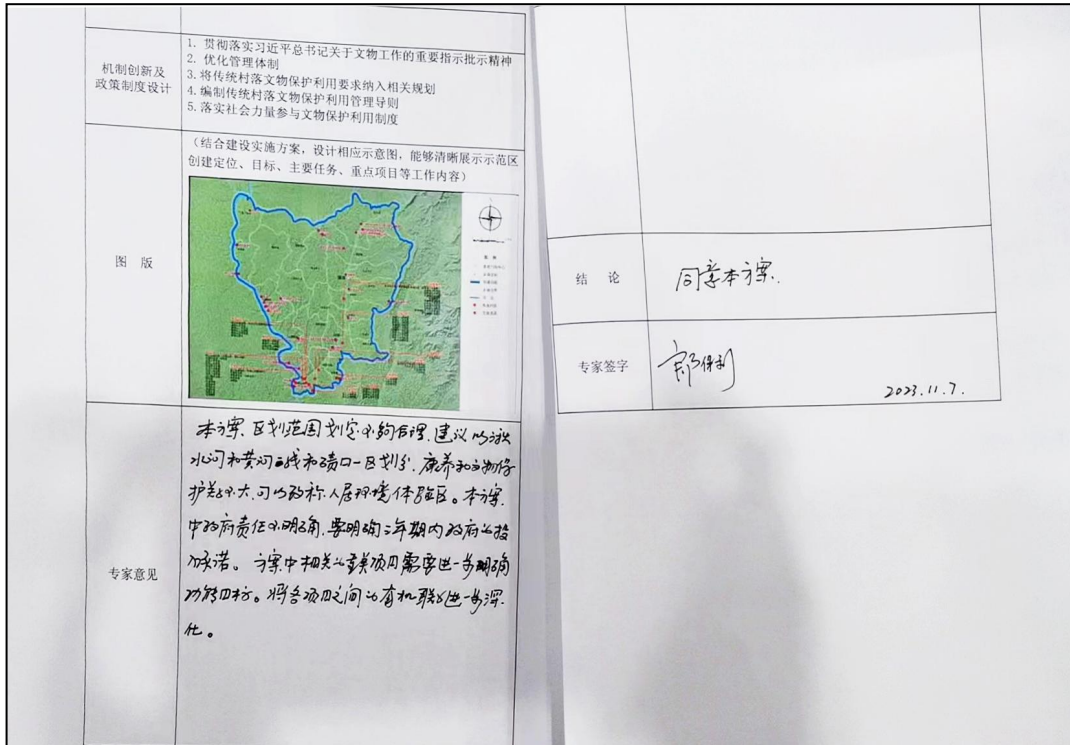 机制创新及
政策制度设计
1. 贯彻落实习近平总书记关于文物工作的重要指示批示精神
2. 优化管理体制
3. 将传统村落文物保护利用要求纳入相关规划
4. 编制传统村落文物保护利用管理导则
5. 落实社会力量参与文物保护利用制度
图 版
（结合建设实施方案，设计相应示意图，能够清晰展示示范区
创建定位、目标、主要任务、重点项目等工作内容）
专家意见
本方案区划范围划定不够合理，建议以湫
水河和黄河两线和碛口一区划分，康养和文物保
护关系不大，可以改称人居环境体验区。本方案
中政府责任不明确，要明确三年期内政府的投
入承诺。方案中相关的项目需要进一步明确
功能目标。将各项目之间的有机联系进一步深
化。
结 论
同意本方案.
专家签字
2023.11.7.